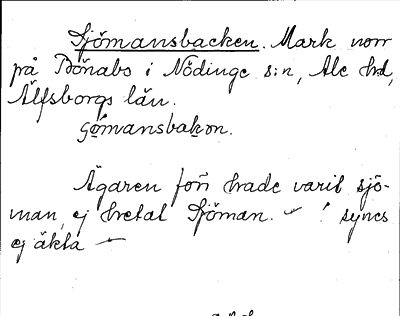 Sjömansbacken. Mark norr
på Bönabo i Nödinge s:n, Ale hd,
Älfsborgs län.
Sömansbakon.
Ägaren förr hade varit sjö-
man, ej hetat Sjöman. – ! synes
ej äkta –